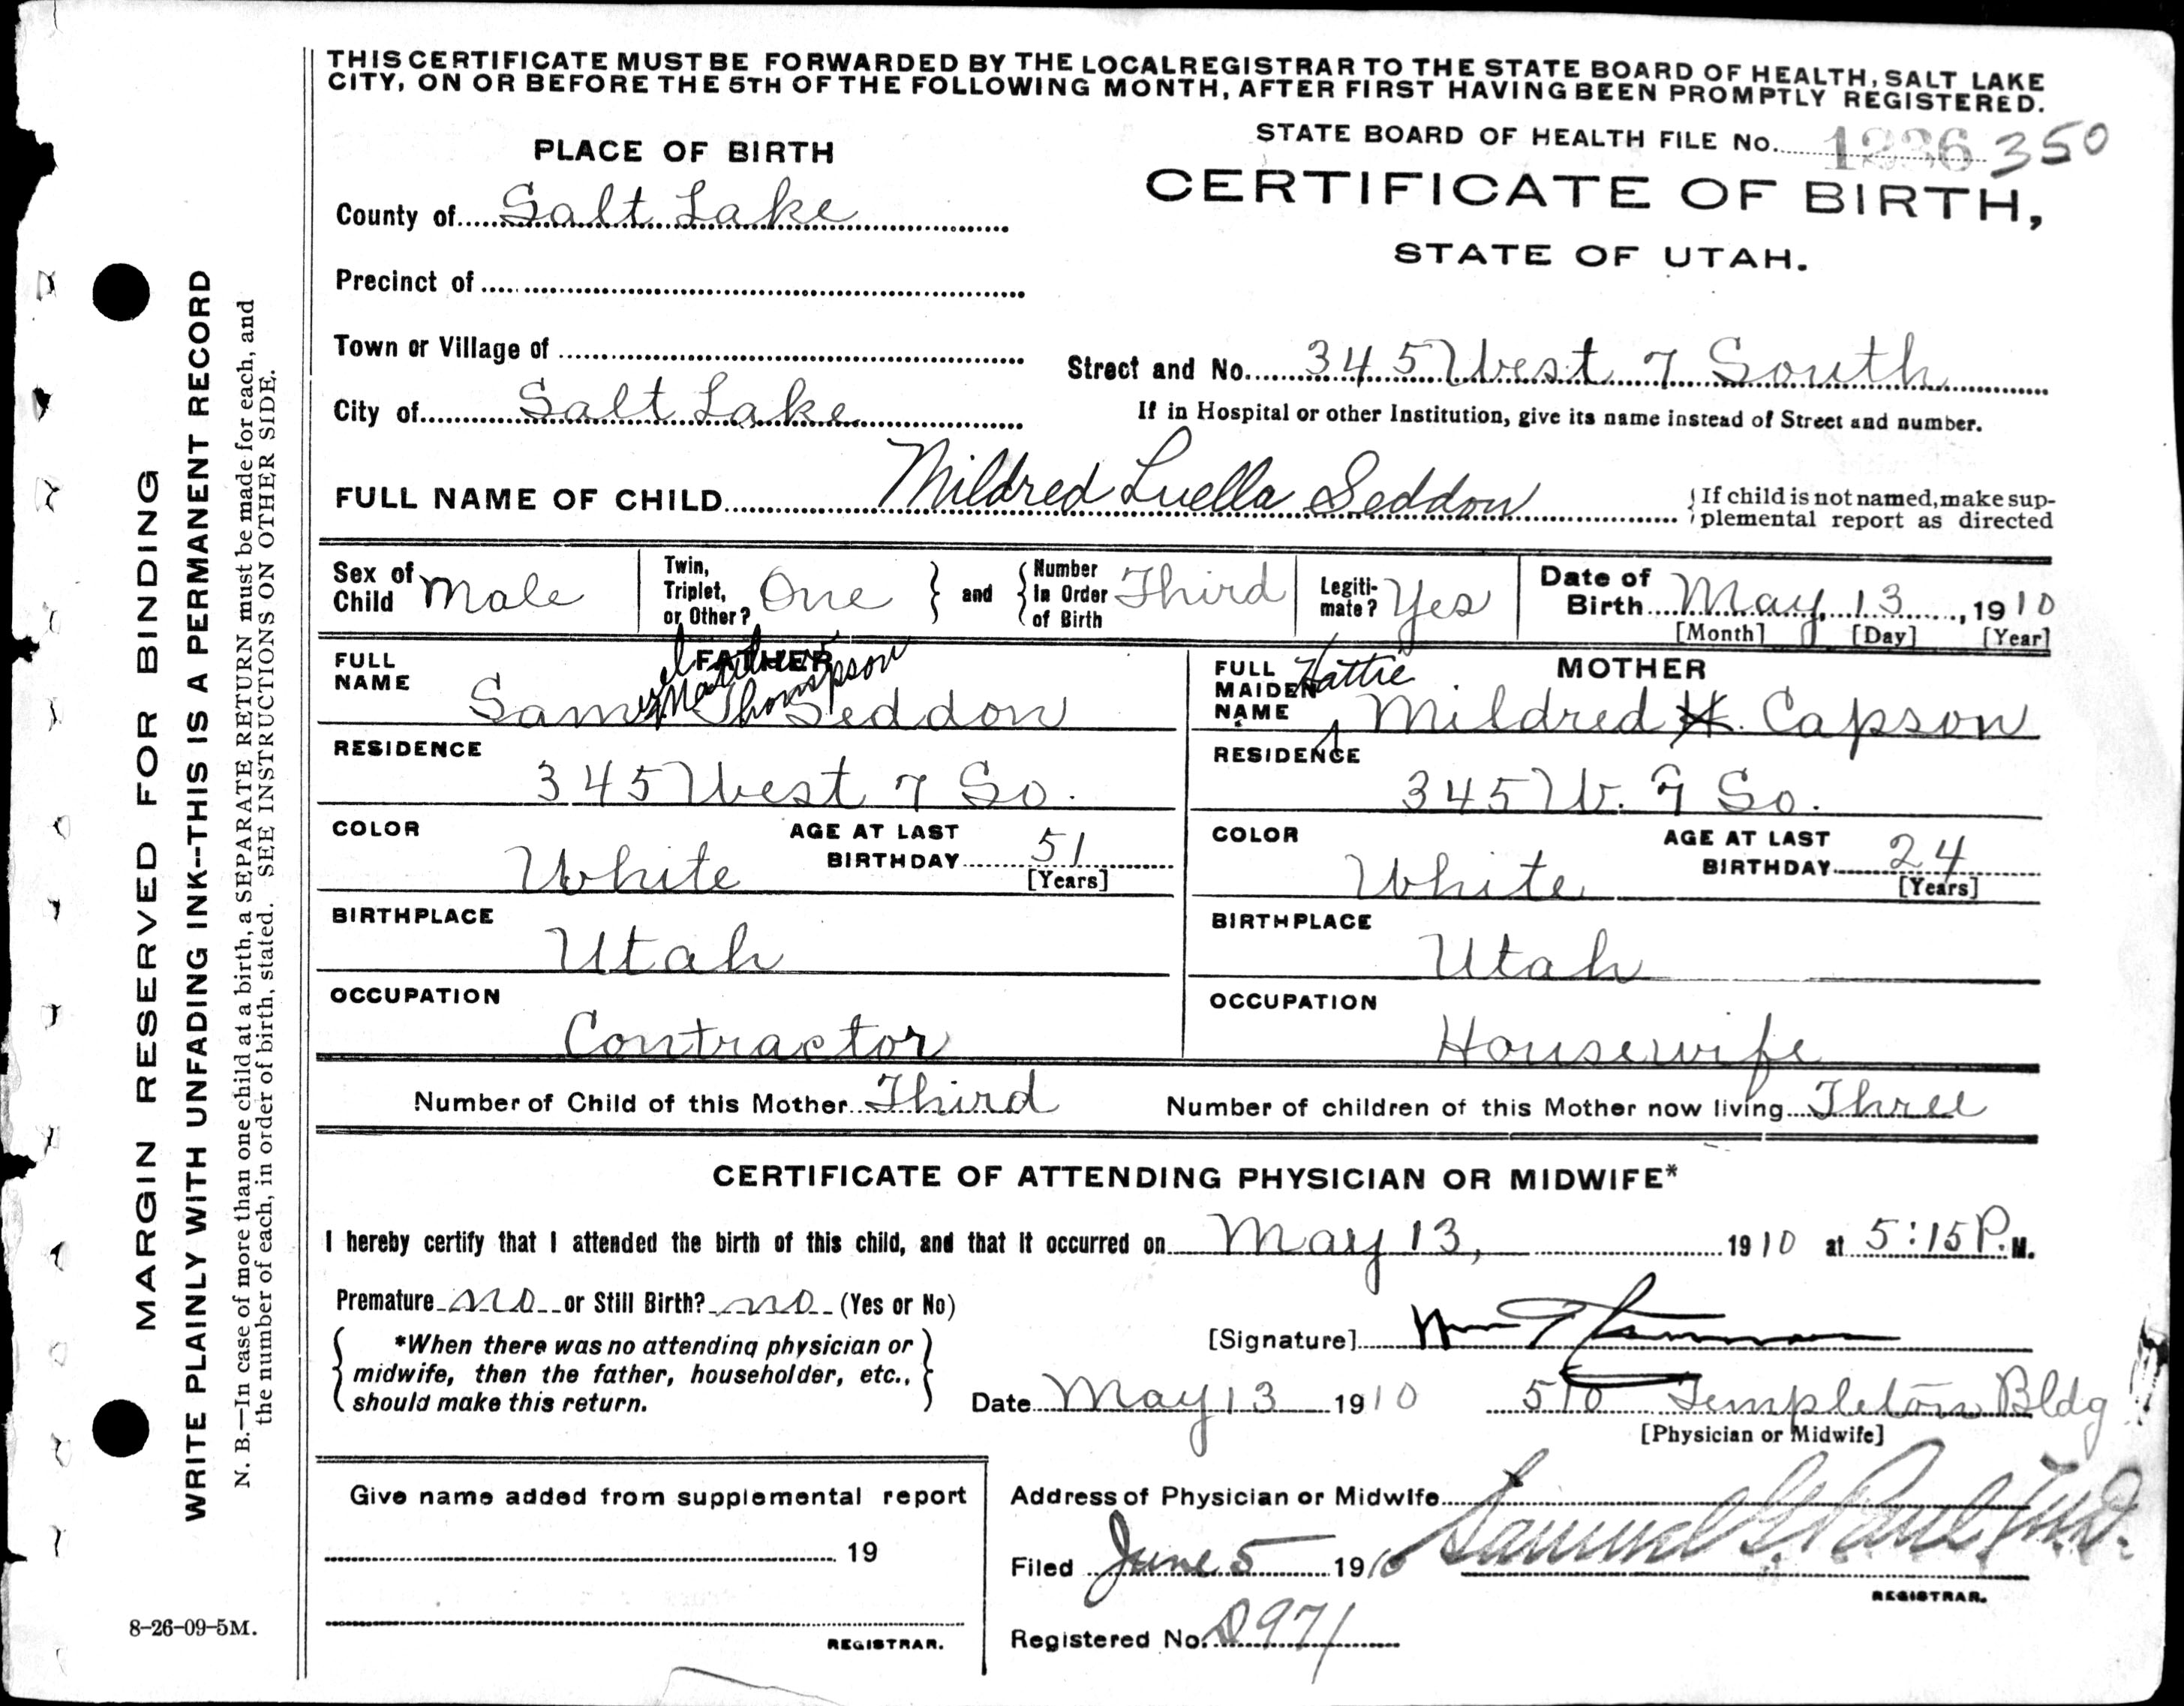 THIS CERTIFICATE MUST BE FORWARDED BY THE LOCAL REGISTRAR TO THE STATE BOARD OF HEALTH, SALT LAKE
CITY, ON OR BEFORE THE 5TH OF THE FOLLOWING MONTH, AFTER FIRST HAVING BEEN PROMPTLY REGISTERED.
STATE BOARD OF HEALTH FILE No. 1236 350
PLACE OF BIRTH
CERTIFICATE OF BIRTH,
STATE OF UTAH.
County of Salt Lake
Precinct of
Town or Village of
Street and No. 345 West 7 South
City of Salt Lake
If in Hospital or other Institution, give its name instead of Street and number.
FULL NAME OF CHILD Mildred Luella Seddon
If child is not named, make sup-
plemental report as directed
Sex of Child Male
Twin, Triplet, or Other? One
and Number In Order of Birth Third
Legiti-mate? Yes
Date of Birth May, 13, 1910
[Month] [Day] [Year]
FATHER
FULL NAME Samuel Thompson Seddon
MOTHER
FULL MAIDEN NAME Mildred Hattie H. Capson
RESIDENCE 345 West 7 So.
RESIDENCE 345 W. 7 So.
COLOR White
AGE AT LAST BIRTHDAY 51 [Years]
COLOR White
AGE AT LAST BIRTHDAY 24 [Years]
BIRTHPLACE Utah
BIRTHPLACE Utah
OCCUPATION Contractor
OCCUPATION Housewife
Number of Child of this Mother Third
Number of children of this Mother now living Three
CERTIFICATE OF ATTENDING PHYSICIAN OR MIDWIFE*
I hereby certify that I attended the birth of this child, and that it occurred on May 13, 1910 at 5:15 P. M.
Premature no or Still Birth? no (Yes or No)
*When there was no attending physician or
midwife, then the father, householder, etc.,
should make this return.
[Signature] Wm
Date May 13 1910
510 Templeton Bldg
[Physician or Midwife]
Give name added from supplemental report
19
REGISTRAR.
Address of Physician or Midwife
Filed June 5 1910
Samuel G. Paul M.D.
REGISTRAR.
Registered No. 971
MARGIN RESERVED FOR BINDING
WRITE PLAINLY WITH UNFADING INK--THIS IS A PERMANENT RECORD
N. B.—In case of more than one child at a birth, a SEPARATE RETURN must be made for each, and
the number of each, in order of birth, stated. SEE INSTRUCTIONS ON OTHER SIDE.
8-26-09-5M.